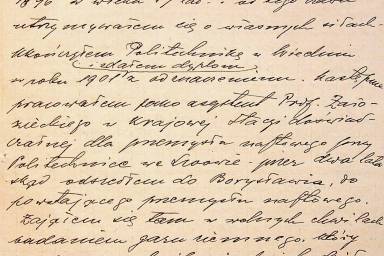 1896 w wieku
utrzymywałem się o własnych siłach.
Ukończyłem Politechnikę w Wiedniu
i zdałem dyplom
w roku 1901 z odznaczeniem. Następnie
pracowałem jako asystent Prof. Załoz-
zieckiego w Krajowej Stacji doświad-
czalnej dla przemysłu naftowego przy
Politechnice we Lwowie - przez dwa lata
skąd odszedłem do Borysławia, do
powstającego przemysłu naftowego.
Zająłem się tam w wolnych chwilach
badaniem gazu ziemnego, który